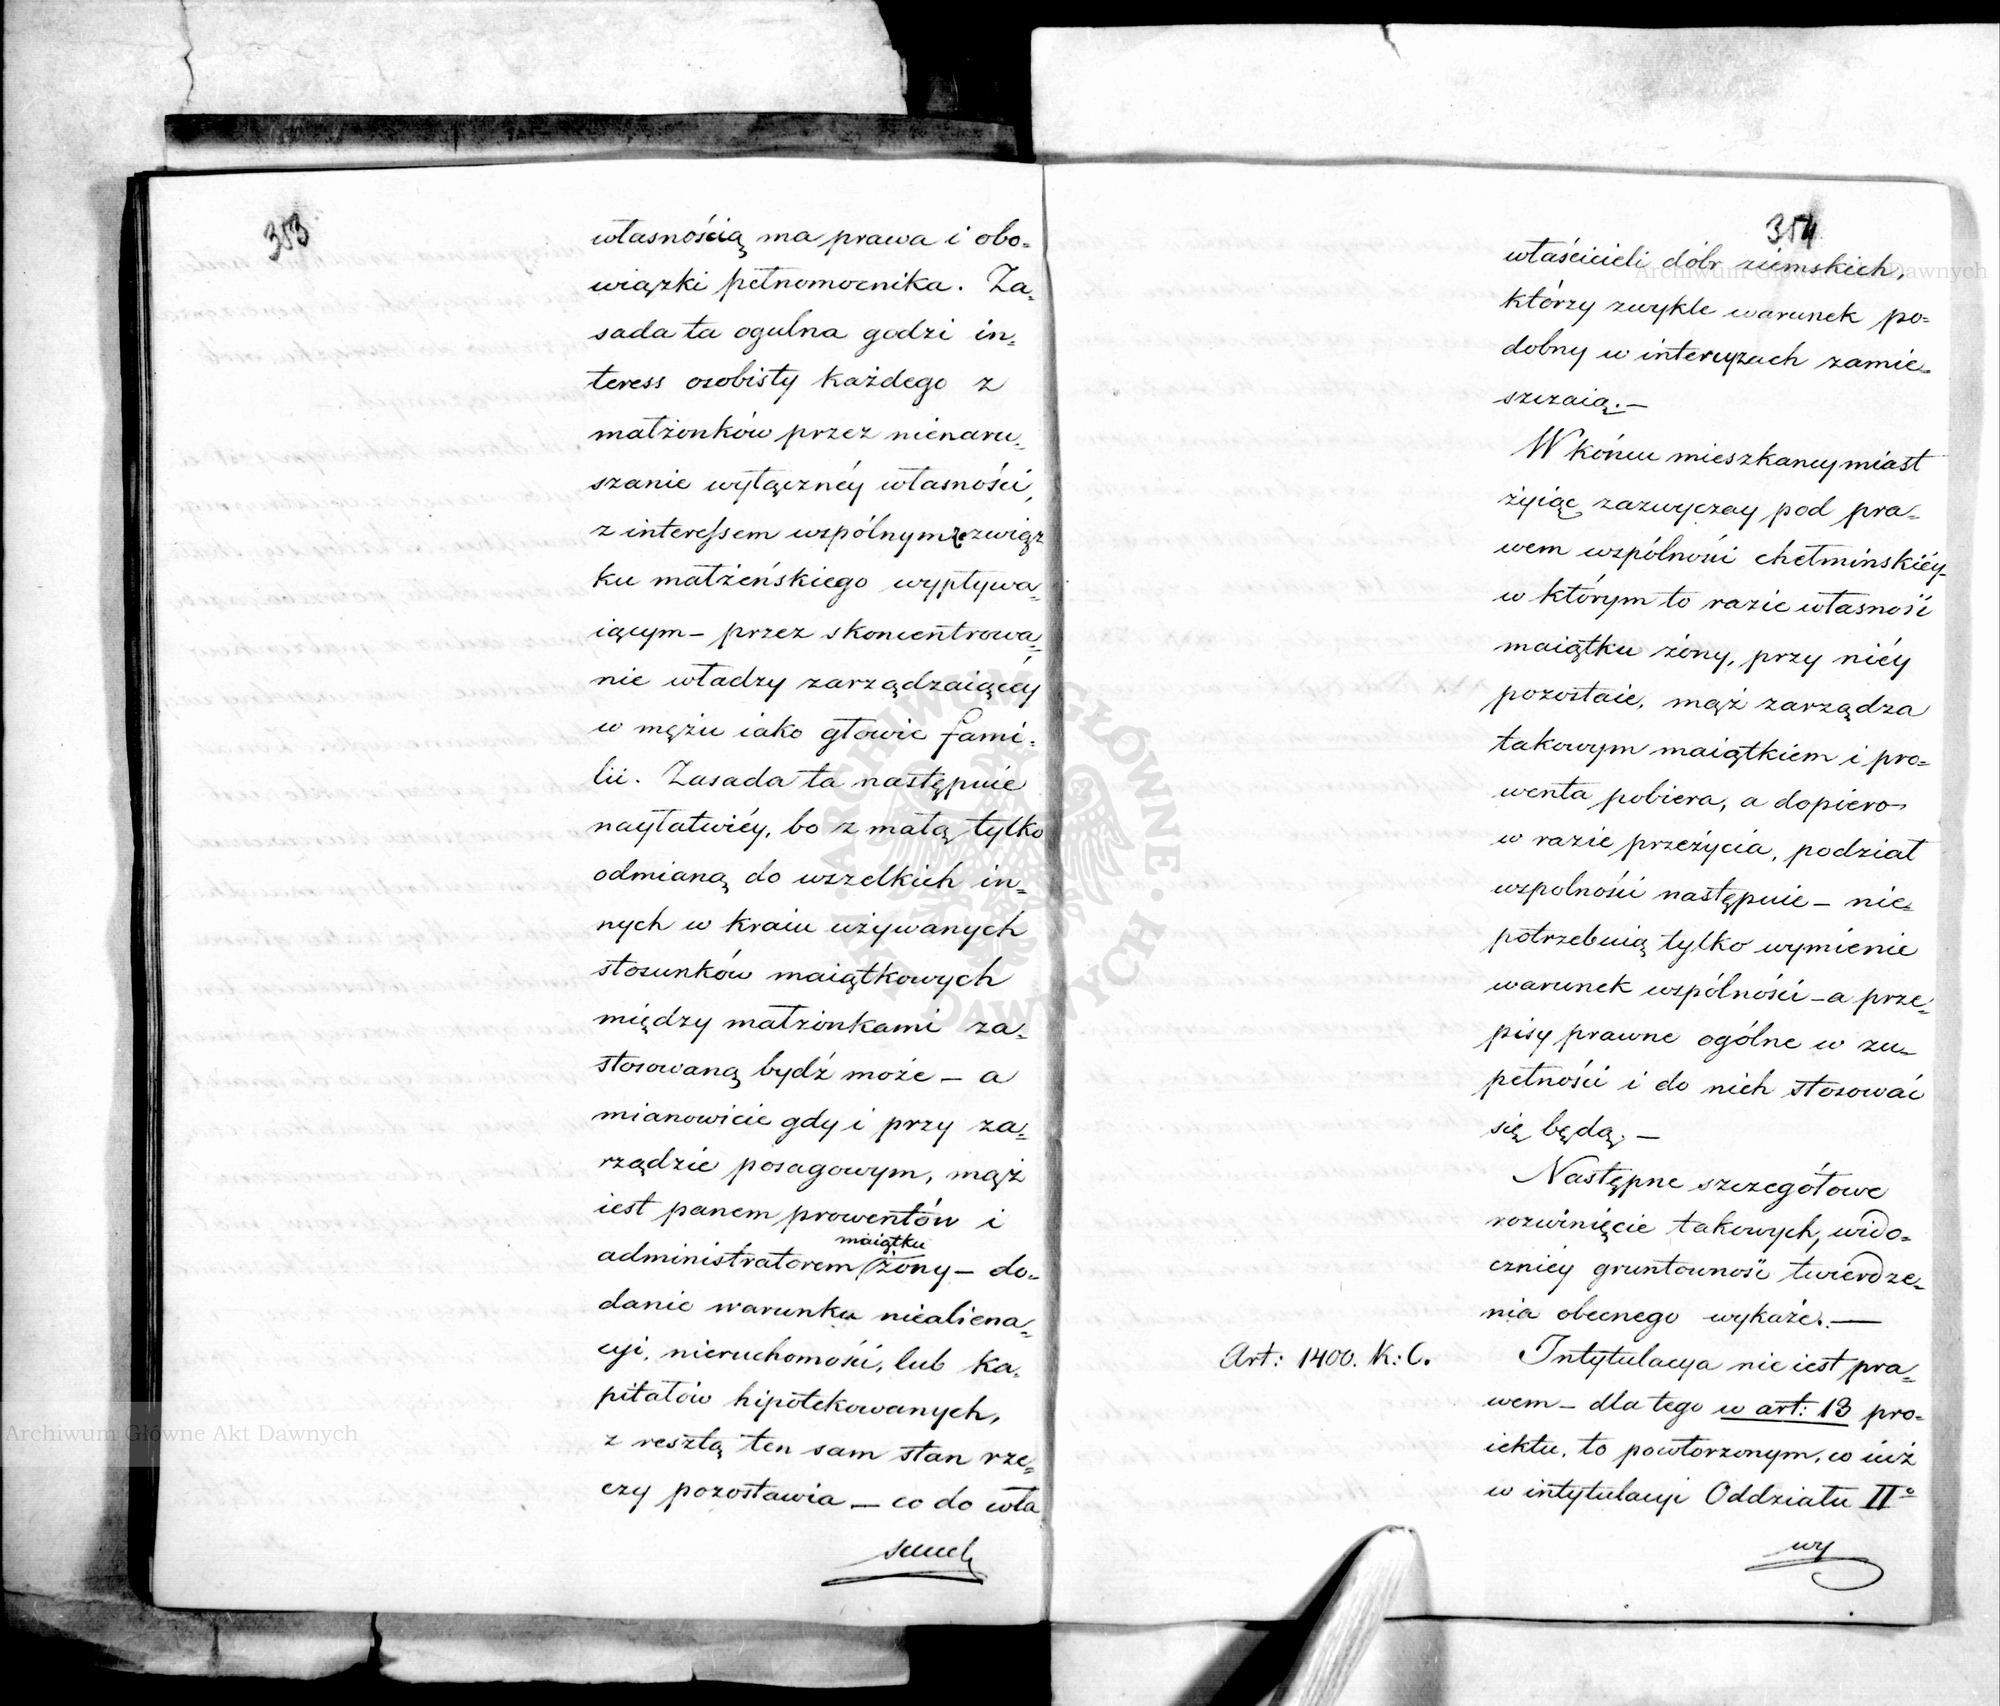 353
własnością ma prawa i obo=
wiązki pełnomocnika. Za=
sada ta ogulna godzi in=
teress osobisty każdego z
małżonków przez nienaru=
szanie wyłącznéy własności,
z interessem wspólnym z związ
ku małżeńskiego wypływa=
iącym – przez skoncentrowa=
nie władzy zarządzaiącéy
w mężu iako głowie fami=
lii. Zasada ta następnie
nayłatwiéy, bo z małą tylko
odmianą do wszelkich in=
nych w kraiu używanych
stosunków maiątkowych
między małżonkami za=
stosowaną bydź może – a
mianowicie gdy i przy za=
rządzie posagowym, mąż
iest panem prowentów i
maiątku
administratorem żony – do=
danie warunku niealiena=
cyi, nieruchomości, lub ka=
pitałów hipotekowanych,
z resztą ten sam stan rze=
czy pozostawia – co do wła
354
właścicieli dóbr ziemskich,
którzy zwykle warunek po=
dobny w intercyzach zamie=
szczaią. –
W końcu mieszkancy miast
żyiąc zazwyczay pod pra=
wem wspólności chełmińskiéy
w którym to razie własność
maiątku żony, przy niéy
pozostaie, mąż zarządza
takowym maiątkiem i pro=
wenta pobiera, a dopiero
w razie przeżycia, podział
wspolności następuie – nie=
potrzebuią tylko wymienie
warunek wspólności – a prze=
pisy prawne ogólne w zu=
pełności i do nich stosować
się będą. –
Następne szczegółowe
rozwinięcie takowych, wido=
czniéy gruntowność twierdze=
nia obecnego wykaże. –
Art: 1400. K: C.
Intytulacya nie iest pra=
wem – dla tego w art: 13 pro=
iektu, to powtorzonym, co iuż
w intytulacyi Oddziału II°
wy
Archiwum Główne Akt Dawnych
Archiwum Główne Akt Dawnych
ARCHIWUM GŁÓWNE AKT DAWNYCH